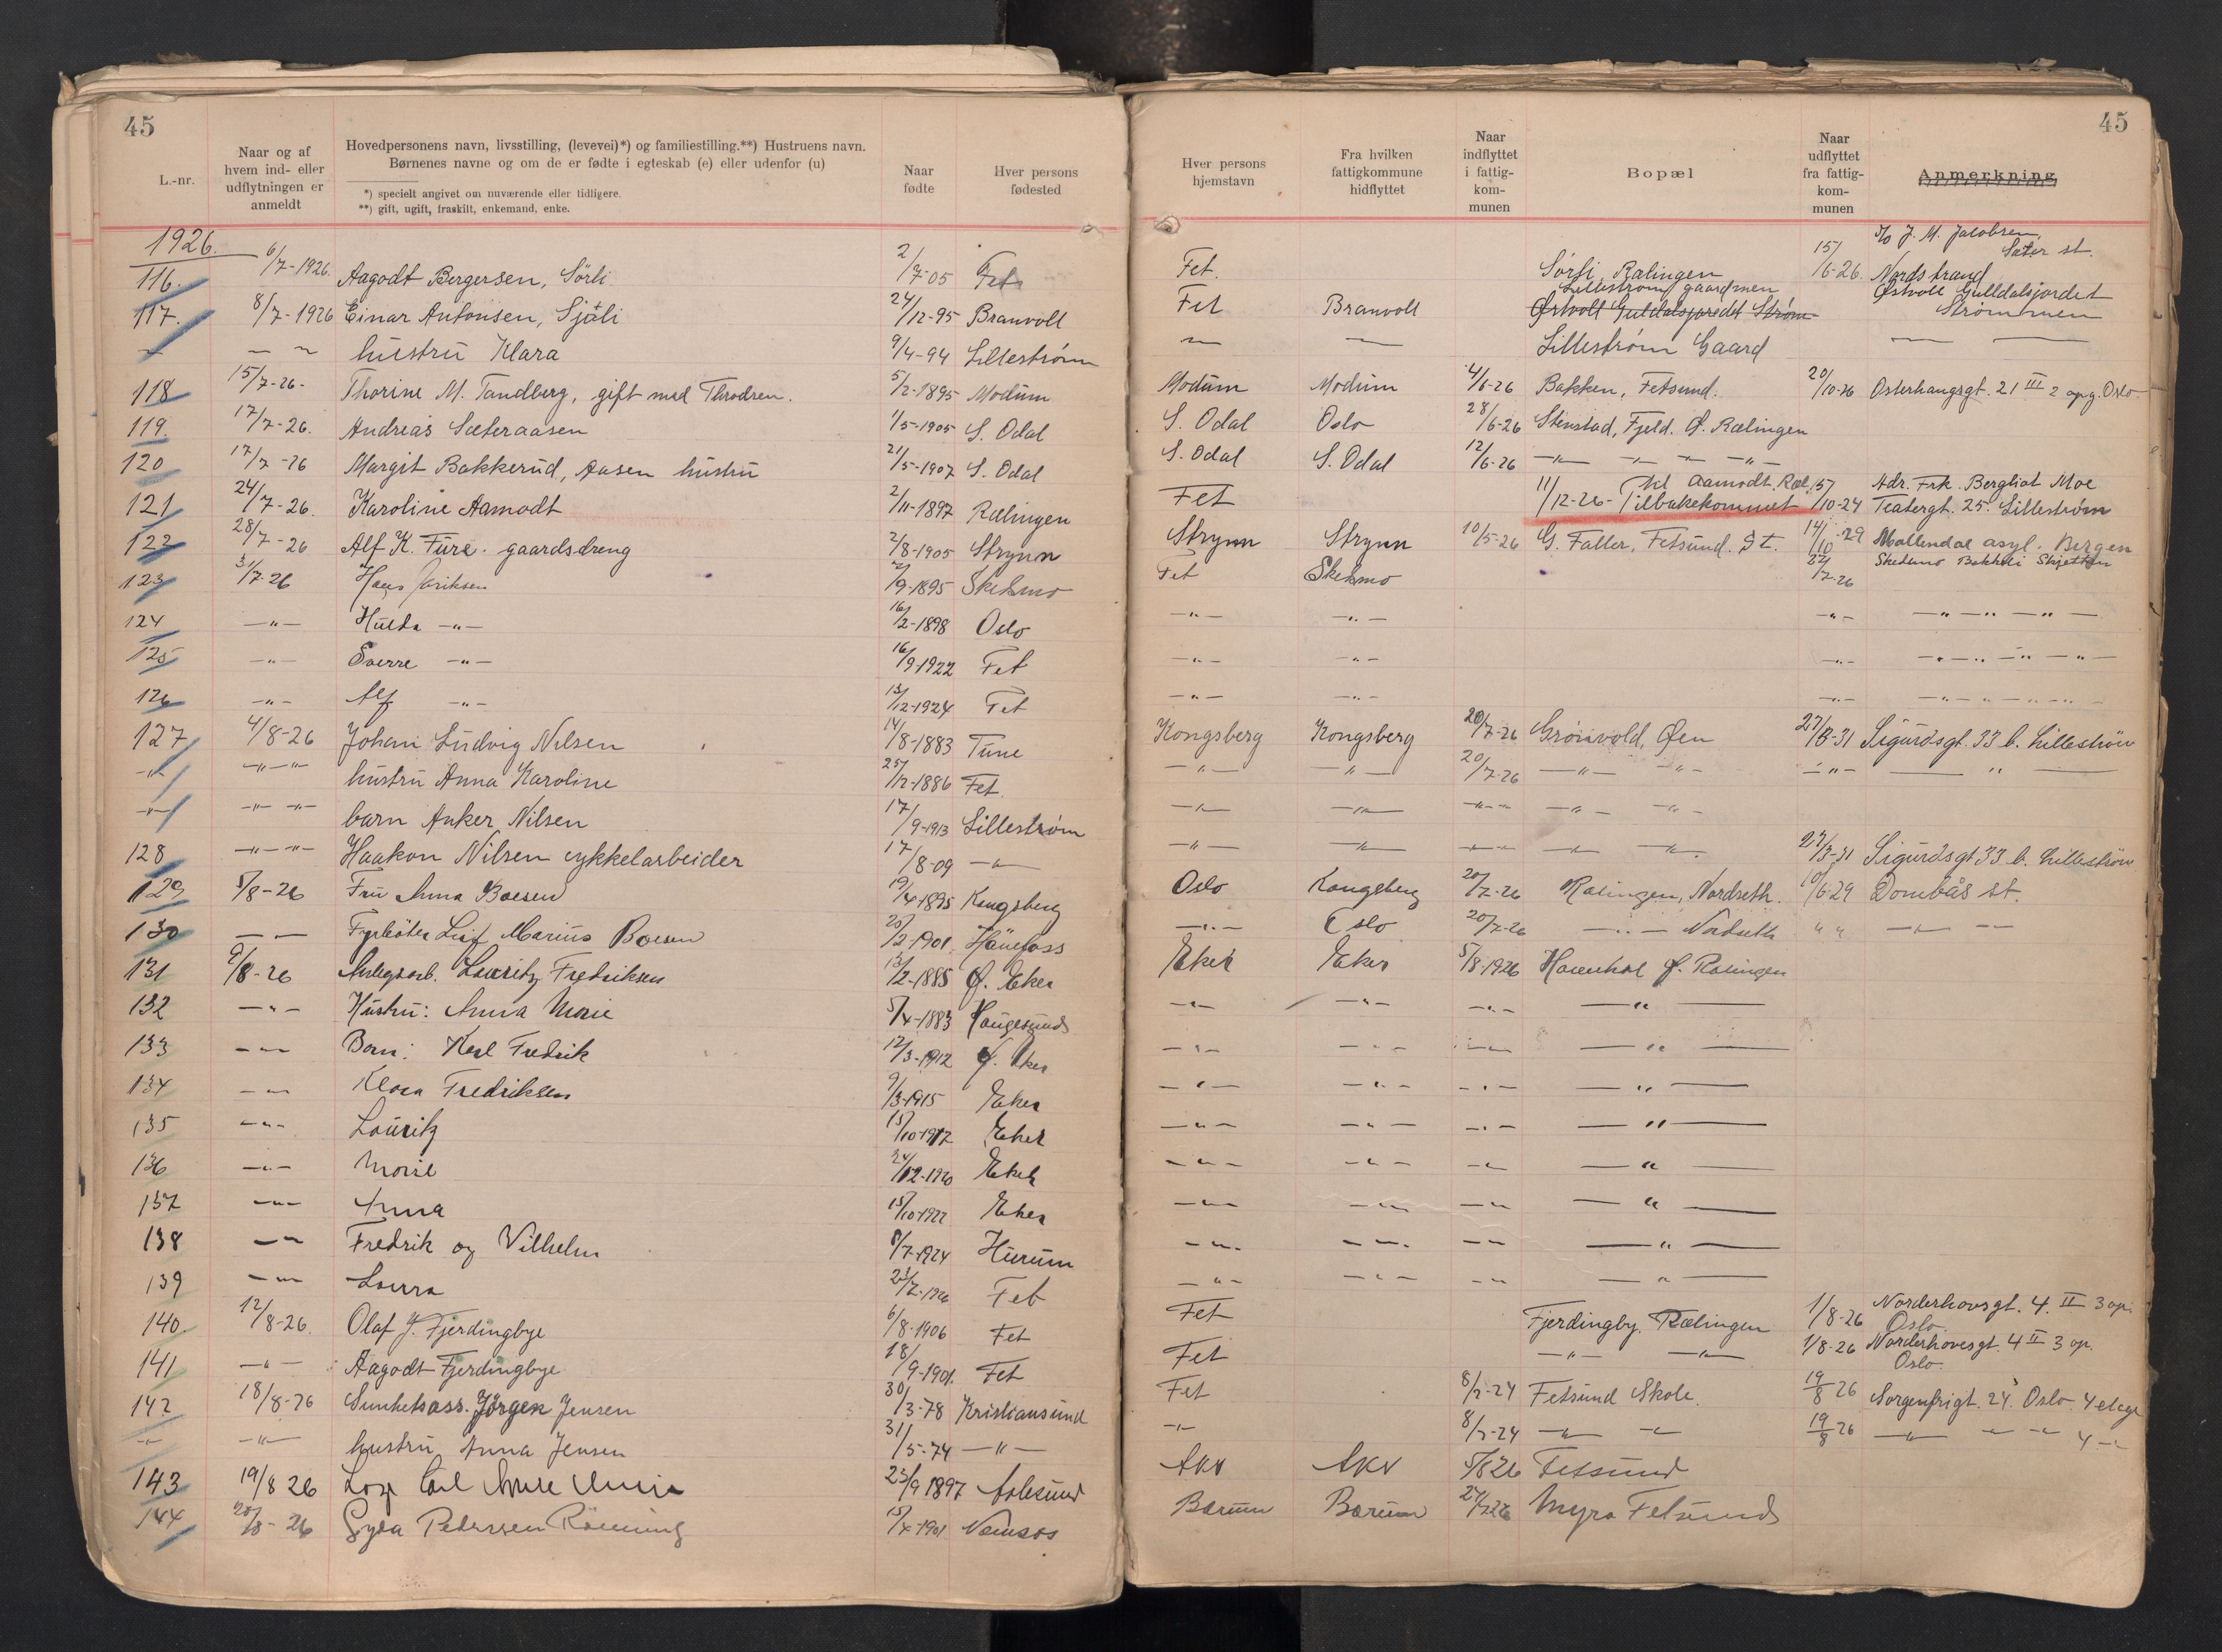 45
L.-nr.
Naar og af hvem ind- eller udflytningen er anmeldt
Hovedpersonens navn, livsstilling, (levevei)*) og familiestilling.**) Hustruens navn.
Børnenes navne og om de er fødte i egteskab (e) eller udenfor (u)
*) specielt angivet om nuværende eller tidligere.
**) gift, ugift, fraskilt, enkemand, enke.
Naar fødte
Hver persons fødested
Hver persons hjemstavn
Fra hvilken fattigkommune hidflyttet
Naar indflyttet i fattig-kom-munen
Bopæl
Naar udflyttet fra fattig-kom-munen
Anmerkning
45
1926.
116. 6/7-1926. Aagodt Bergersen, Sörli 2/7-05 Fet Fet. Sørli, Rælingen 15/6-26. c/o J. M. Jacobsen, Sæter st. Nordstrand
117. 8/7-1926 Einar Antonsen, Sjåli 24/12-95 Branvoll Fet Branvoll Lillestrøm gaard Østvoll Guldalsjordet Strøm- Østvoll Gulldalsjordet Strømmen
— — — hustru Klara 9/4-94 Lillestrøm — — Lillestrøm Gaard — —
118 15/7-26- Thorine M. Tandberg, gift med Throdsen. 5/2-1895 Modum Modum Modum 4/6-26 Bakken, Fetsund. 20/10-26 Østerhaugsgt. 21 III 2 opg. Oslo.
119. 17/7-26. Andreas Sæteraasen 1/5-1905 S. Odal S. Odal Oslo 28/6-26 Stenstad, Fjeld. Ø. Rælingen
120 17/7-26 Margit Bakkerud, Aasen hustru 21/5-1907 S. Odal S. Odal S. Odal 12/6-26 -"- -"- -"- -"-
121 24/7-26. Karoline Aamodt 2/11-1897 Rælingen Fet 11/12-26- Tilbakekommet til Aamodt. Ræl. 15/10-24 Adr. Frk. Bergliot Moe Teatergt. 25. Lillestrøm
122 28/7-26 Alf K. Fure. gaardsdreng 2/8-1905 Strynn Strynn Strynn 10/5-26 G. Faller, Fetsund. St. 14/10-29 Møllendal asyl. Bergen
123 31/7-26 Hans 2/9-1895 Skedsmo Fet Skedsmo 22/7-26 Skedsmo Bakkeli Skjetten
124 -"- Hulda -"- 16/2-1898 Oslo -"- -"- -"- -"-"-"-"-
125 -"- Sverre -"- 16/9-1922 Fet -"- -"- -"- -"-"-"-"-
126 -"- Alf -"- 13/12-1924 Fet -"- -"- -"- -"-"-"-"-
127 4/8-26 Johan Ludvig Nilsen 14/8-1883 Tune Kongsberg Kongsberg 20/7-26 Grønvold, Øen 27/3-31 Sigurdsgt. 33 b. Lillestrøm
-"- -"-"- hustru Anna Karoline 25/12-1886 Fet. -"- -"- 20/7-26 -"- -"- -"- — " —
-"- -"- -"- barn Anker Nilsen 17/9-1913 Lillestrøm -"- -"- -"- -"- -"-
128 -"-"- Haakon Nilsen cykkelarbeider 17/8-09 -"- -"- -"- -"- -"- -"- 27/3-31 Sigurdsgt 33 b. Lillestrøm
129 5/8-26 Fru Anna Boesen 19/4-1895 Kongsberg Oslo Kongsberg 20/7-26 Rælingen, Nordseth. 10/6-29 Dombås st.
130 — — Fyrböter Leif Marius Boesen 20/2-1901 Hönefoss -"- Oslo 20/7-26 -"- Nordseth " " -"- —
131 9/8-26 Anlegsarb. Lauritz Fredriksen 13/2-1885 Ø. Eker Eker Eker 5/8-1926 Ø. Rælingen
132 -"- Hustru: Anna Marie 5/4-1883 Haugesund -"- -"- -"- -"-
133 -"- Barn: Karl Fredrik 12/3-1912 Ø. Eker -"- -"- -"- -"-
134 -"- Klara Fredriksen 9/3-1915 Eker -"- -"- -"- -"-
135 -"- Lauritz 15/10-1917 Eker -"- -"- -"- -"-
136 -"- Marie 24/12-1920 Eker -"- -"- -"- -"-
137 -"- Anna 15/10-1922 Eker -"- -"- -"- -"-
138 -"- Fredrik og Vilhelm 8/7-1924 Hurum -"- -"- -"- -"-
139 -"- Laura 23/7-1926 Fet -"- -"- -"- -"-
140. 12/8-26. Olaf J. Fjerdingbye 6/8-1906 Fet Fet Fjerdingby, Rælingen 1/8-26 Norderhovsgt. 4. II 3 op. Oslo.
141 -"- Aagodt Fjerdingbye 18/9-1901. Fet Fet -"- -"- 1/8-26 Norderhovsgt. 4 II 3 op. Oslo.
142 18/8-26 Sunhetsass. Jörgen Jensen 30/3-78 Kristiansund Fet 8/2-24 Fetsund Skole. 19/8 26 Sorgenfrigt. 24. Oslo. 4 etage
-"- -"- hustru Anna Jensen 31/5-74 -"- -"- 8/2-24 -"- -"- 19/8 26 -"- -"- -"- 4 -"-
143 19/8 26 23/9 1897 Aalesund Akv Akv 5/8 26 Fetsund
144 20/8-26 Gyda Pedersen Rönning 15/4-1901 Namsos Bærum Bærum 24/7 26 Myra Fetsund